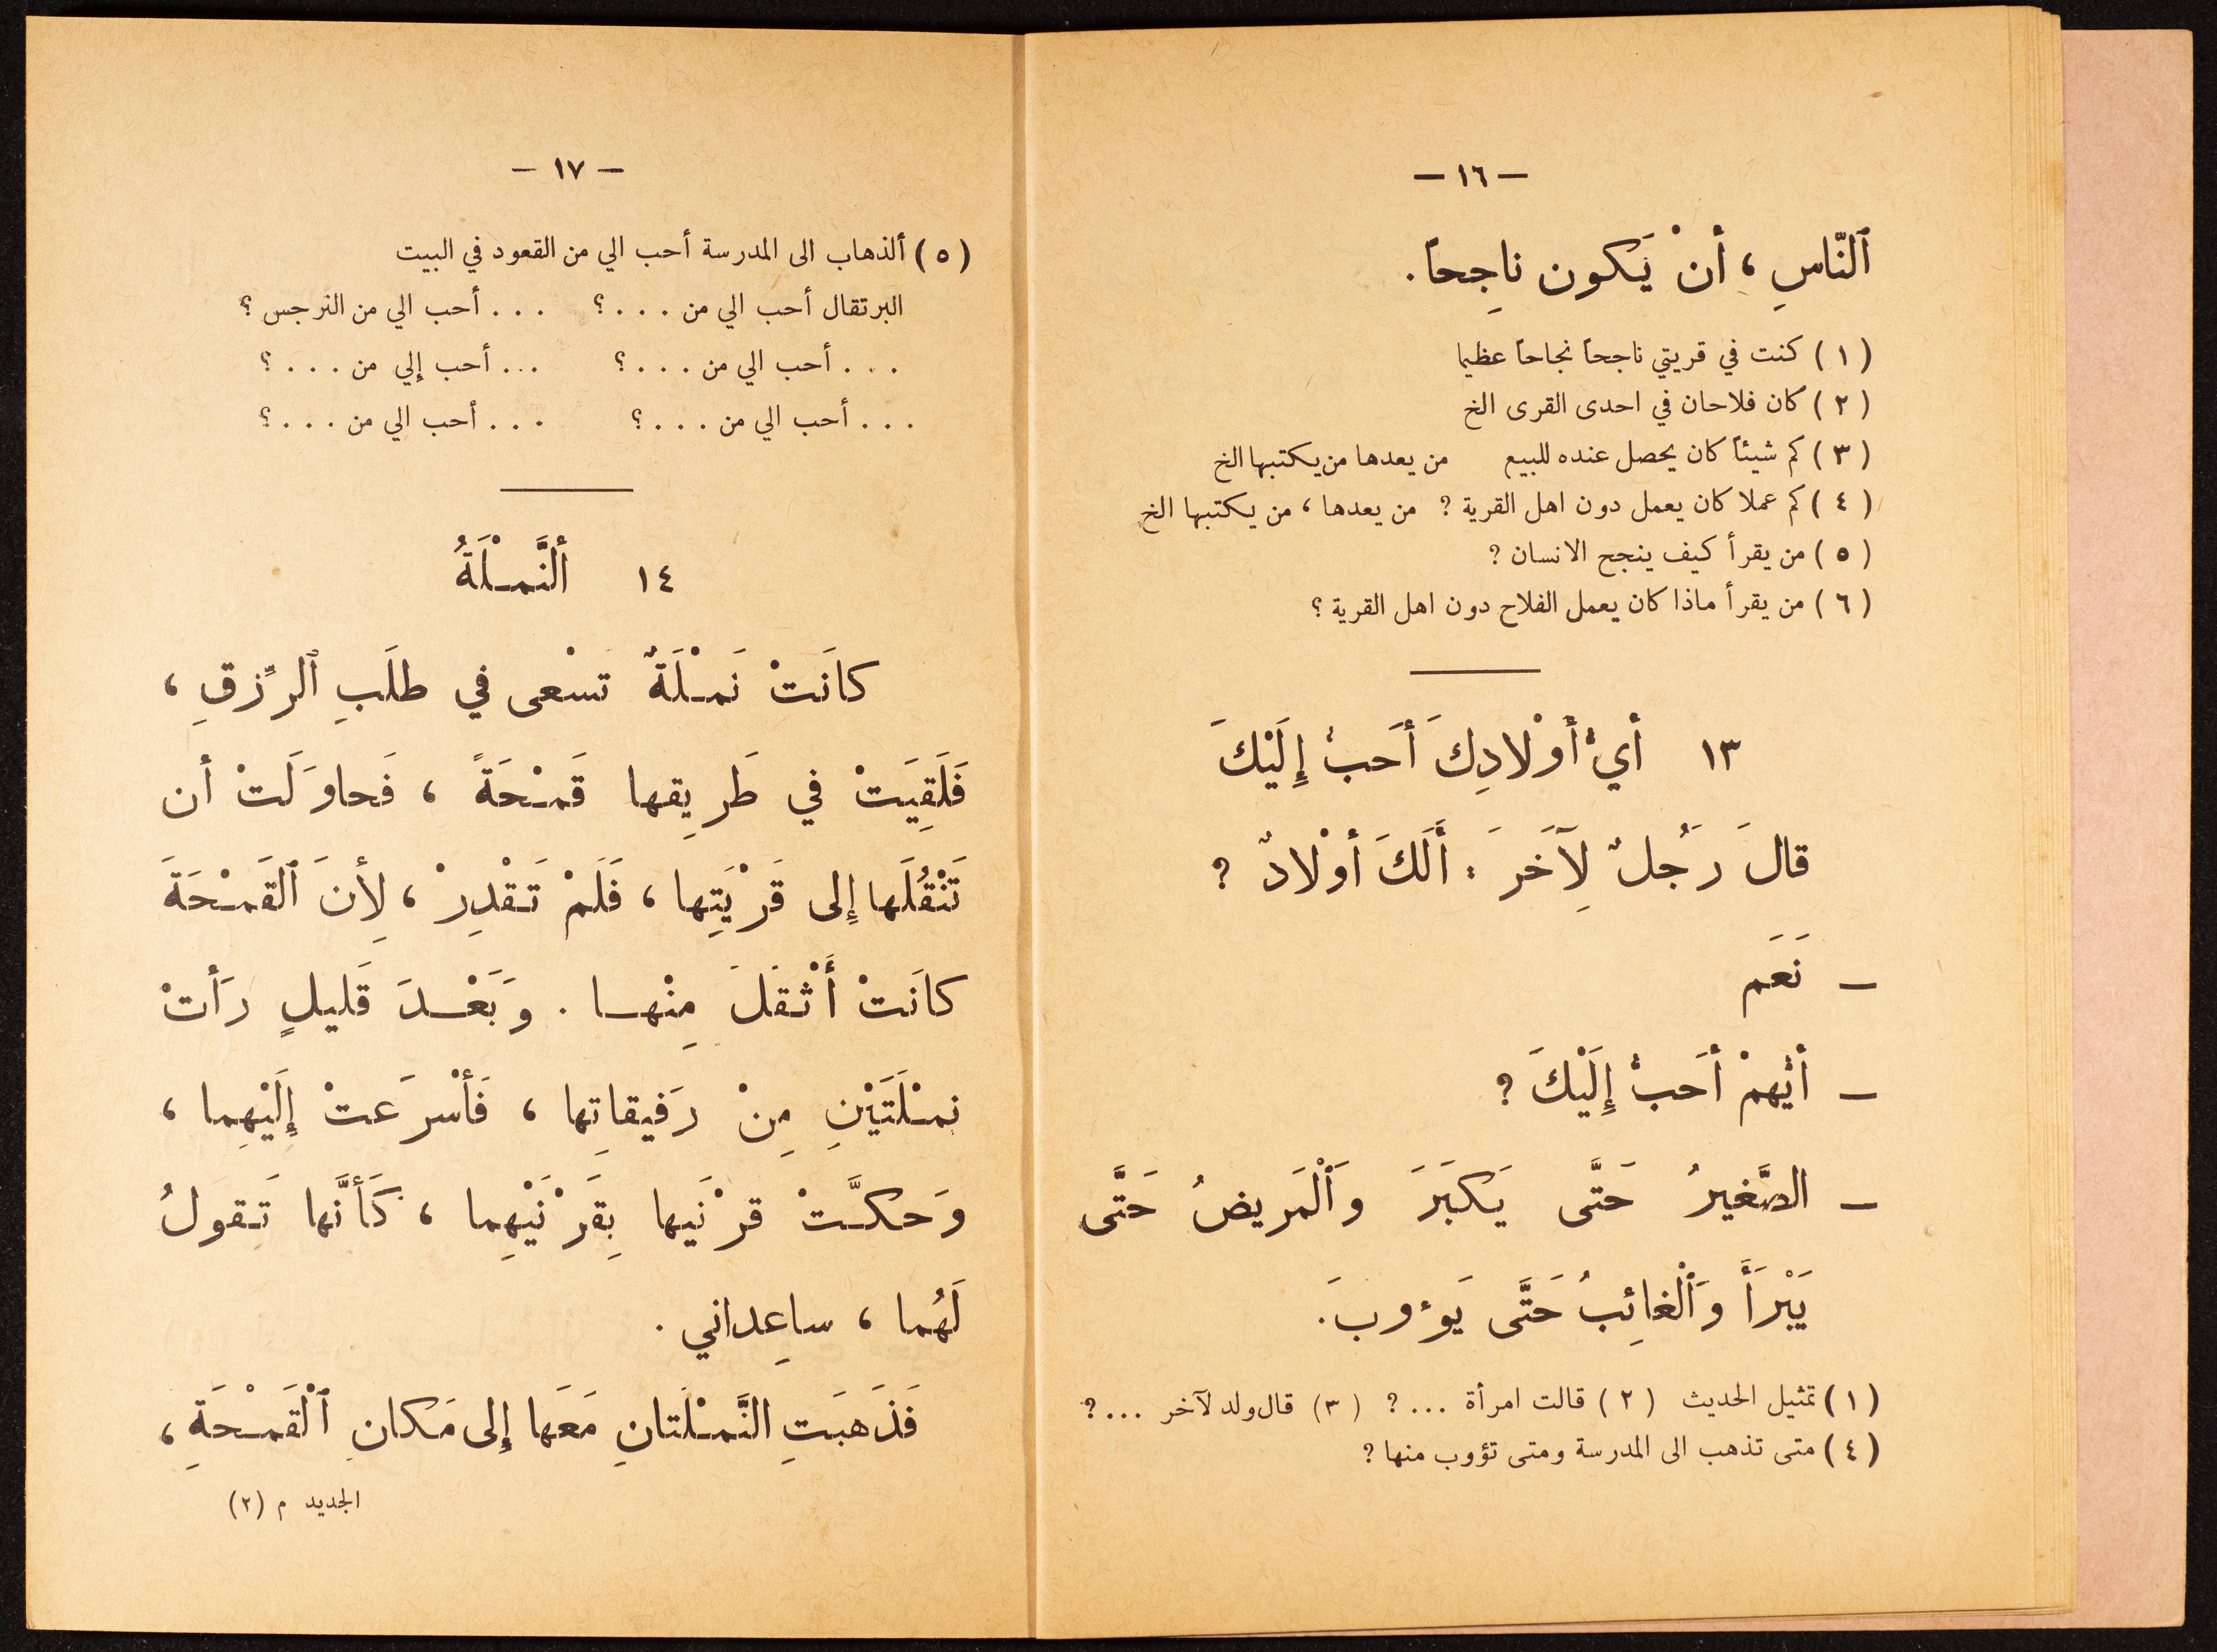 — ١٦ —
ٱلنّاسِ ، أنْ يَكون ناجِحاً .
( ١ ) كنت في قريتي ناجحاً نجاحاً عظيما
( ٢ ) كان فلاحان في احدى القرى الخ
( ٣ ) كم شيئاً كان يحصل عنده للبيع من يعدها من يكتبها الخ
( ٤ ) كم عملا كان يعمل دون اهل القرية ؟ من يعدها ، من يكتبها الخ
( ٥ ) من يقرأ كيف ينجح الانسان ؟
( ٦ ) من يقرأ ماذا كان يعمل الفلاح دون اهل القرية ؟
١٣ أيُّ أَوْلادِكَ أَحَبُّ إِلَيْكَ
قالَ رَجُلٌ لِآخَرَ : أَلَكَ أوْلادٌ ؟
— نَعَم
— أيُّهمْ أحَبُّ إِلَيْكَ ؟
— الصَّغيرُ حَتَّى يَكبَرَ وَٱلْمَريضُ حَتَّى
يَبْرَأَ وَٱلْغائِبُ حَتَّى يَوءوبَ .
( ١ ) تمثيل الحديث ( ٢ ) قالت امرأة ... ؟ ( ٣ ) قال ولد لآخر ... ؟
( ٤ ) متى تذهب الى المدرسة ومتى تؤوب منها ؟
— ١٧ —
( ٥ ) ألذهاب الى المدرسة أحب الي من القعود في البيت
البرتقال أحب الي من . . . . ؟ . . . أحب الي من النرجس ؟
. . . أحب الي من . . . . ؟ . . . أحب إلي من . . . . ؟
. . . أحب الي من . . . . ؟ . . . أحب الي من . . . . ؟
١٤ ألنَّمْلَةُ
كانَتْ نَمْلَةٌ تسْعى في طلَبِ ٱلرِّزقِ ،
فَلَقِيَتْ في طَريقِها قَمْحَةً ، فَحاوَلَتْ أن
تَنْقُلَها إِلى قَرْيَتِها ، فَلَمْ تَقْدِرْ ، لِأنَ ٱلقَمْحَةَ
كانَتْ أَثْقَلَ مِنْها . وَبَعْدَ قَليلٍ رَأتْ
نمْلَتَيْنِ مِنْ رَفيقاتِها ، فَأسْرَعتْ إِلَيْهِما ،
وَحكَّتْ قرْنَيها بِقَرْنَيْهِما ، كَأنَّها تَقولُ
لَهُما ، ساعِداني .
فَذَهبَتِ النَّمْلَتانِ مَعَها إِلى مَكانِ ٱلْقَمْحَةِ ،
الجديد م (٢)